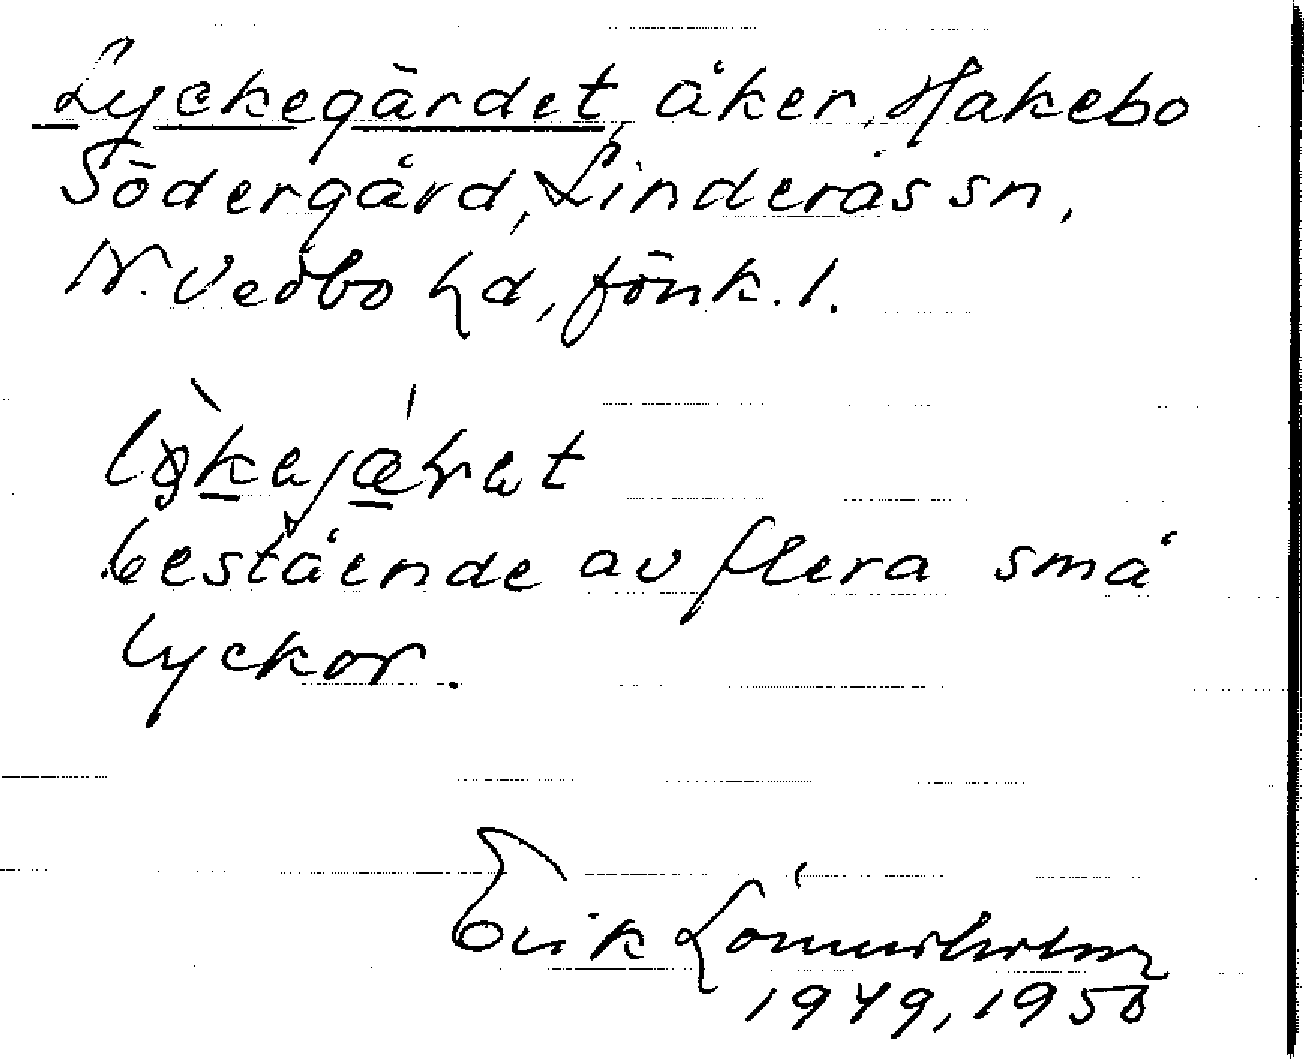 Lyckegärdet, åker, Hakebo
Södergård, Linderås sn,
N. Vedbo hd, Jönk. l.
bestående av flera små
lyckor.
Erik Lönnerholm
1949, 1950